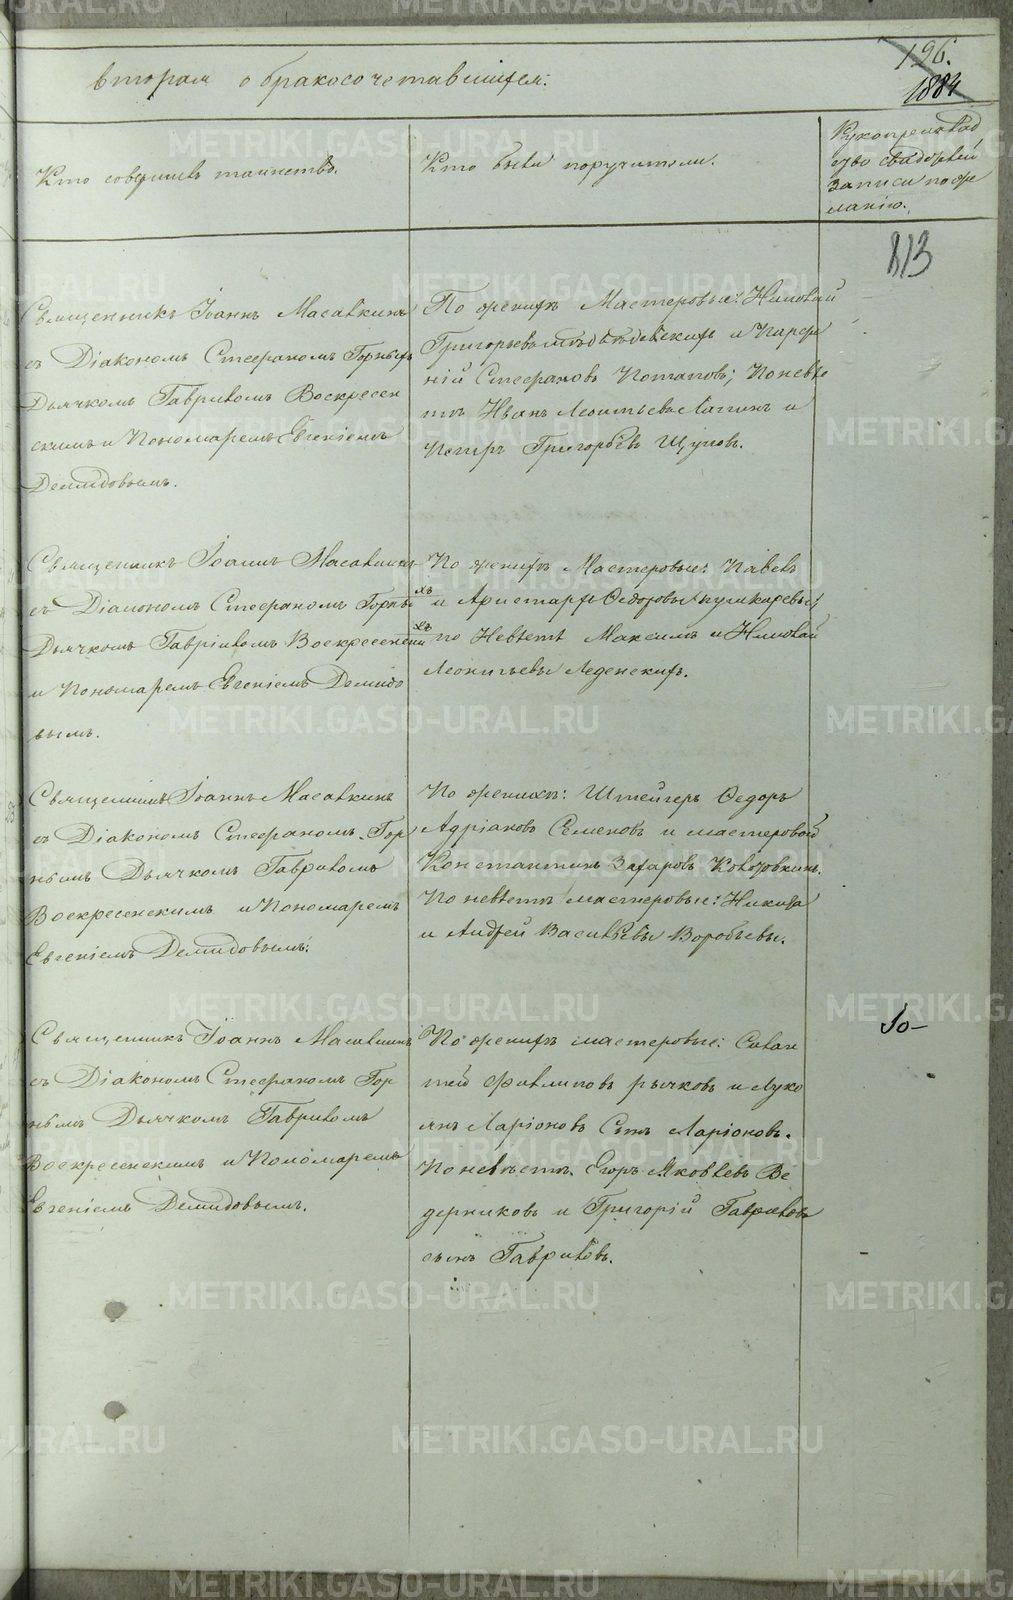 второй о бракосочетавшихся:
196.
1884
Кто совершилъ таинство.
Кто были поручители.
Рукоприкладство
свидѣтелей
записи по же
ланію.
813
Священникъ Іоаннъ Масалкинъ
съ Діакономъ Стефаномъ Горныхъ
Дьячкомъ Гавриломъ Воскресен
скимъ и Пономаремъ Евгеніемъ
Демидовымъ.
По женихѣ Мастеровые: Николай
Григорьевъ и Парфе
ній Стефановъ Потаповъ; По невѣс
тѣ Иванъ Леонтьевъ Лапинъ и
Петръ Григорьевъ Щуповъ.
Священникъ Іоаннъ Масалкинъ
съ Діакономъ Стефаномъ Горныхъ
Дьячкомъ Гавріиломъ Воскресенскимъ
и Пономаремъ Евгеніемъ Демидо
вымъ.
По женихѣ Мастеровые: Павелъ
и Аристархъ Ѳедоровы Пушкаревы;
по Невѣстѣ Максимъ и Николай
Леонтьевы Леденскихъ.
Священникъ Іоаннъ Масалкинъ
съ Діакономъ Стефаномъ Гор
нымъ Дьячкомъ Гавриломъ
Воскресенскимъ и Пономаремъ
Евгеніемъ Демидовымъ.
По женихѣ: Штейгеръ Ѳедоръ
Адріановъ Семеновъ и мастеровой
Константинъ Захаровъ Колобовкинъ.
По невѣстѣ мастеровые: Никита
и Андрей Васильевы Воробьевы.
Священникъ Іоаннъ Масалкинъ
съ Діакономъ Стефаномъ Гор
нымъ Дьячкомъ Гавриломъ
Воскресенскимъ и Пономаремъ
Евгеніемъ Демидовымъ.
По женихѣ мастеровые: Савва
тей Филиповъ Рычковъ и Луко
янъ Ларіоновъ Сынъ Ларіоновъ.
По невѣстѣ Егоръ Яковлевъ Ве
дерниковъ и Григорій Гавриловъ
сынъ Гавриловъ.
METRIKI.GASO-URAL.RU